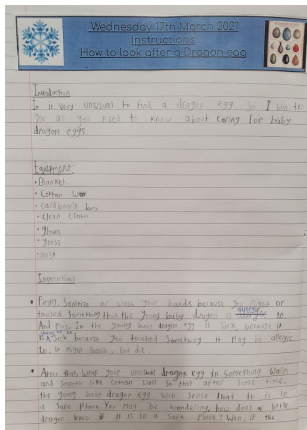 Wednesday 17th March 2021
Instructions
How to look after a Dragon egg
Introduction
It is very unusual to find a dragon egg so I will tell
you all you need to know about caring for baby
dragon eggs.
Equipment:
• Blanket
• Cotton Wool
• cardboard box
• clean cloth
• gloves
• grass
• nest
Instructions
• Firstly, Sanitise or wash your hands because you might of
touched something that the young baby dragon is to.
And puts in the young baby dragon egg is sick, because it
is sick because you touched something it may be allergic
to. It might hatch, but die.
• After that wrap your unusual dragon egg in something warm
and smooth like cotton wall so that after some time,
the young baby dragon egg will sense that it is in
a safe place. You may be wondering, how does a little
dragon know if it is in a safe place? Well, if the